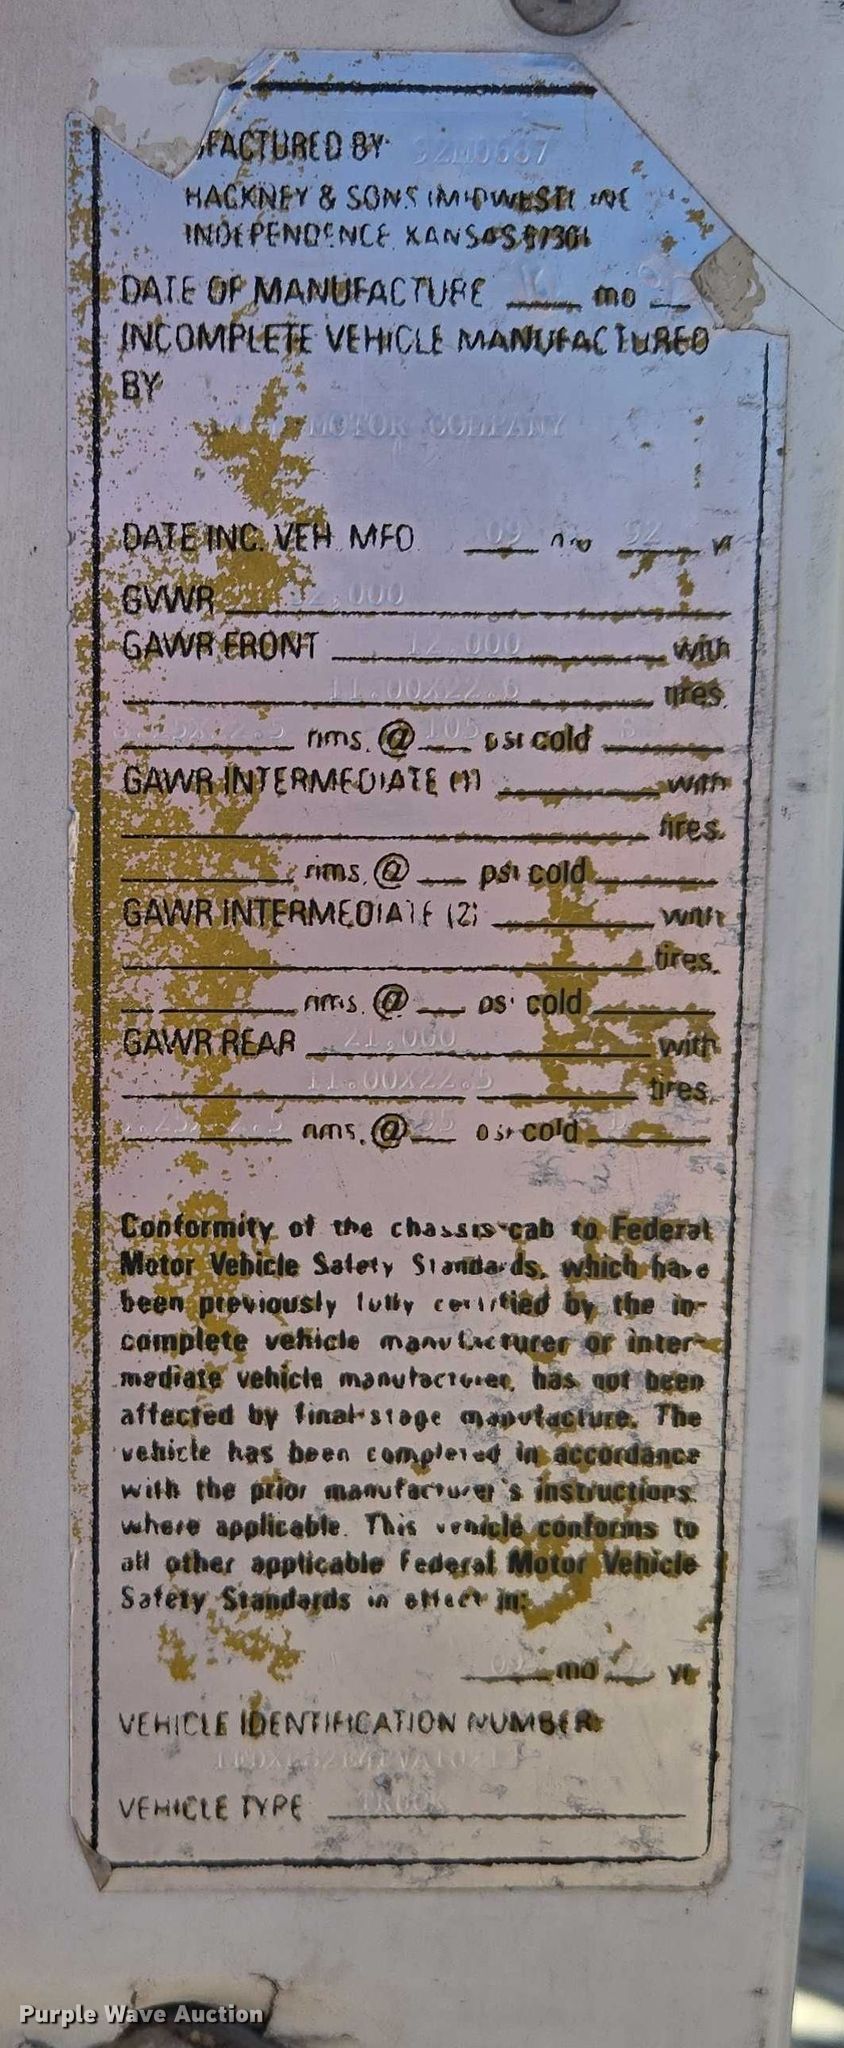 FACTURED BY 92M0687
HACKNEY & SONS (MIDWEST) INC
INDEPENDENCE KANSAS 67301
DATE OF MANUFACTURE mo
INCOMPLETE VEHICLE MANUFACTURED
BY
MOTOR COMPANY
DATE INC. VEH. MFD 09 mo 92 yr
GVWR 32,000
GAWR FRONT 12,000 with
11.00X22.5 tires.
rims. @ 105 psi cold S
GAWR INTERMEDIATE (1) with
tires.
rims. @ psi cold
GAWR INTERMEDIATE (2) with
tires.
rims. @ psi cold
GAWR REAR 21,000 with
11.00X22.5 tires.
rims. @ 95 psi cold
Conformity of the chassis-cab to Federal
Motor Vehicle Safety Standards, which have
been previously fully certified by the in-
complete vehicle manufacturer or inter-
mediate vehicle manufacturer, has not been
affected by final-stage manufacture. The
vehicle has been completed in accordance
with the prior manufacturer's instructions
where applicable. This vehicle conforms to
all other applicable Federal Motor Vehicle
Safety Standards in effect in:
09 mo yr
VEHICLE IDENTIFICATION NUMBER
VEHICLE TYPE TRUCK
Purple Wave Auction